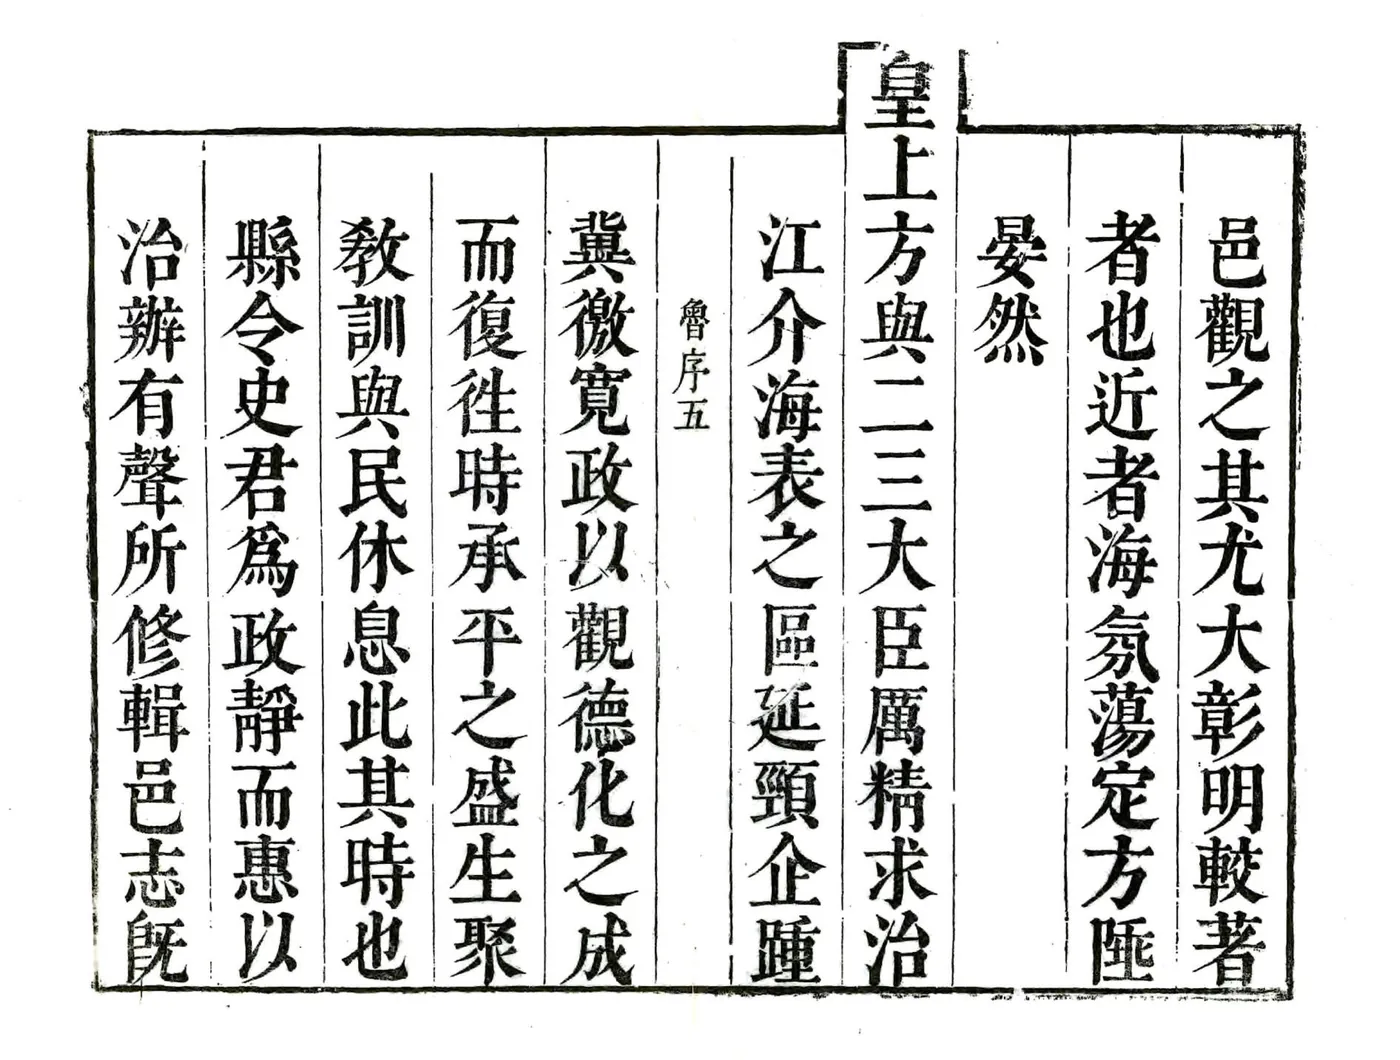 邑觀之其尤大彰明較著
者也近者海氛蕩定方陲
晏然
皇上方與二三大臣厲精求治
江介海表之區延頸企踵
魯序五
冀徼寬政以觀德化之成
而復徃時承平之盛生聚
敎訓與民休息此其時也
縣令史君爲政靜而惠以
治辦有聲所修輯邑志旣